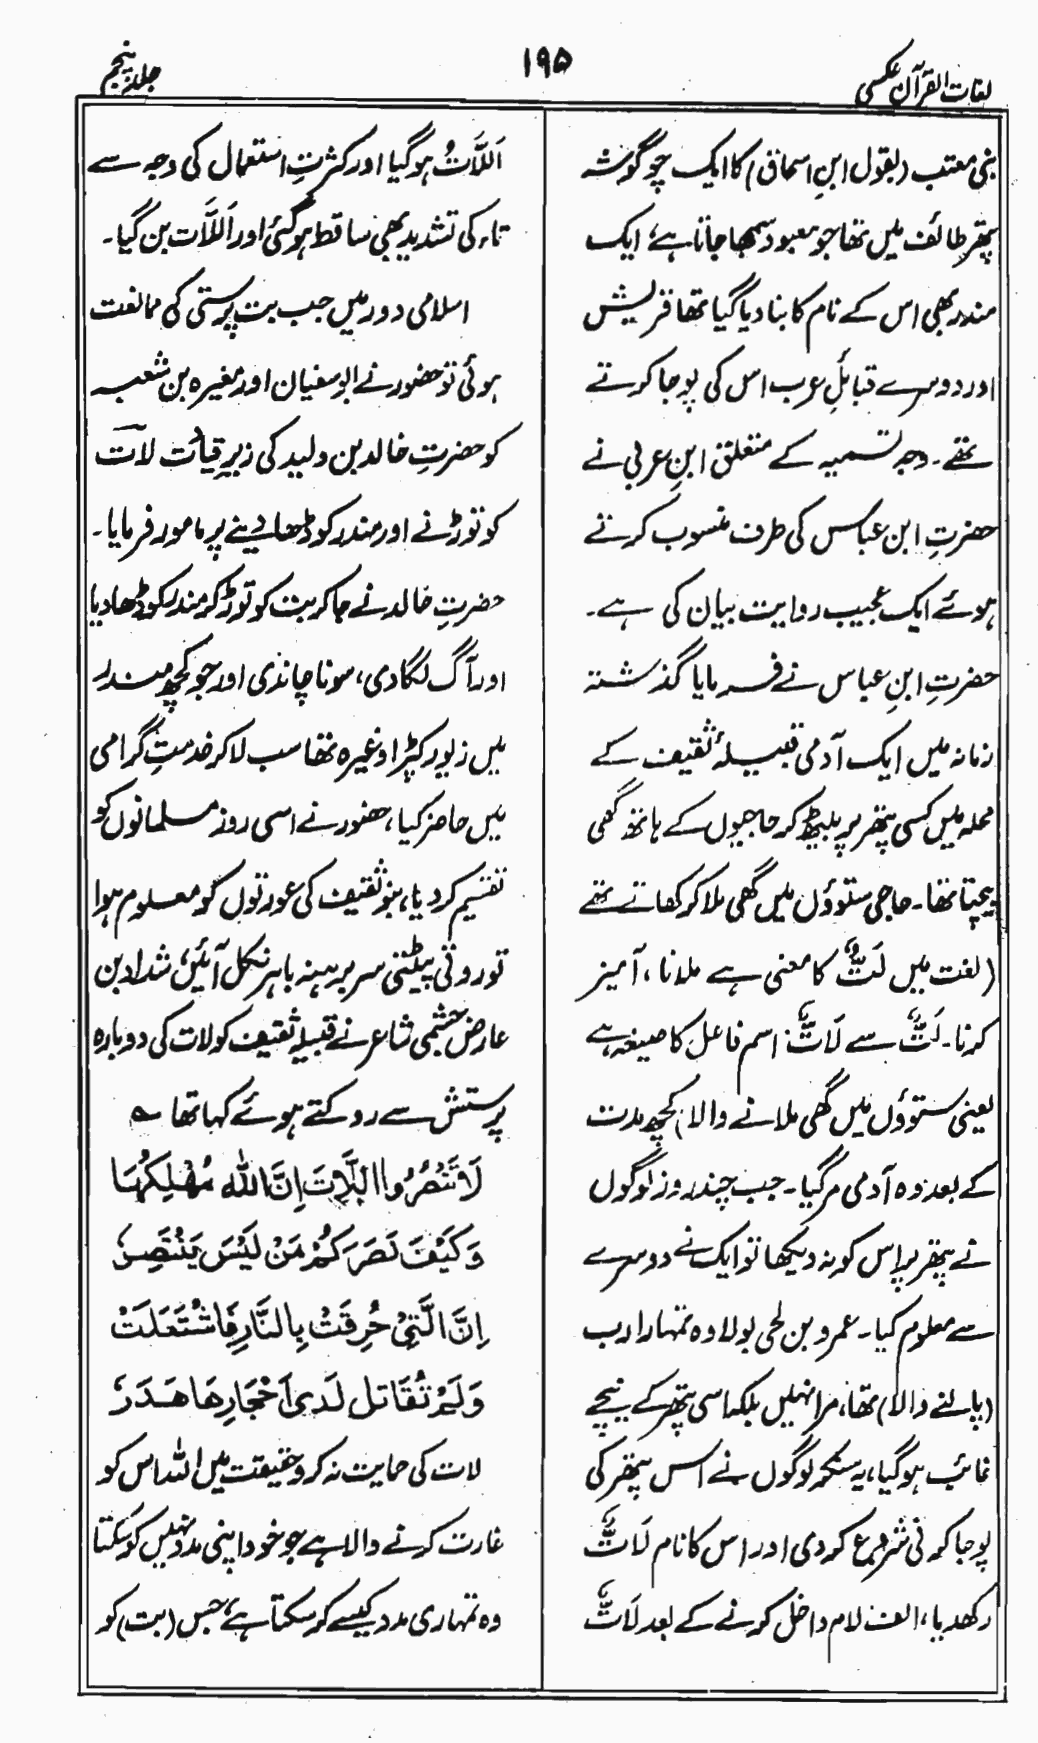 لغات القرآن عکسی
۱۹۵
جلد پنجم
بنی معتب (بقول ابنِ اسحاق) کا ایک چوگوشہ
پتھر طائف میں تھا جو معبود سمجھا جاتا ہے، ایک
مندر بھی اس کے نام کا بنا دیا گیا تھا قریش
اور دوسرے قبائلِ عرب اس کی پوجا کرتے
تھے۔ وجہ تسمیہ کے متعلق ابنِ عربی نے
حضرتِ ابن عباس کی طرف منسوب کرتے
ہوئے ایک عجیب روایت بیان کی ہے۔
حضرتِ ابنِ عباس نے فرمایا گذشتہ
زمانہ میں ایک آدمی قبیلۂ ثقیف کے
محلہ میں کسی پتھر پر بیٹھ کر حاجیوں کے ہاتھ گھی
بیچتا تھا۔ حاجی ستوؤں میں گھی ملا کر کھاتے تھے
(لغت میں لَتٌّ کا معنی ہے ملانا، آمیز
کرنا۔ لَتٌّ سے لَاتٌّ اسم فاعل کا صیغہ ہے
یعنی ستوؤں میں گھی ملانے والا) کچھ مدت
کے بعد وہ آدمی مر گیا۔ جب چند روز لوگوں
نے پتھر پر اس کو نہ دیکھا تو ایک نے دوسرے
سے معلوم کیا۔ عمرو بن لحی بولا وہ تمہارا رب
(پالنے والا) تھا، مرا نہیں بلکہ اسی پتھر کے نیچے
غائب ہوگیا، یہ سنکر لوگوں نے اس پتھر کی
پوجا کرنی شروع کردی اور اس کا نام لَاتٌّ
رکھدیا، الف لام داخل کرنے کے بعد لَاتٌّ
اَللَّاتُّ ہوگیا اور کثرتِ استعمال کی وجہ سے
تاء کی تشدید بھی ساقط ہوگئی اور اَللَّات بن گیا۔
اسلامی دور میں جب بت پرستی کی ممانعت
ہوئی تو حضور نے ابوسفیان اور مغیرہ بن شعبہ
کو حضرتِ خالد بن ولید کی زیرِ قیادت لات
کو توڑنے اور مندر کو ڈھا دینے پر مامور فرمایا۔
حضرتِ خالد نے جاکر بت کو توڑ کر مندر کو ڈھا دیا
اور آگ لگا دی، سونا چاندی اور جو کچھ مندر
میں زیور کپڑا وغیرہ تھا سب لاکر خدمتِ گرامی
میں حاضر کیا، حضور نے اسی روز مسلمانوں کو
تقسیم کردیا، بنو ثقیف کی عورتوں کو معلوم ہوا
تو روتی پیٹتی سر برہنہ باہر نکل آئیں، شداد بن
عارض جشمی شاعر نے قبیلہ ثقیف کو لات کی دوبارہ
پرستش سے روکتے ہوئے کہا تھا ؎
لَا تَنْصُرُوا اللَّاتَ اِنَّ اللّٰهَ مُهْلِكُهَا
وَكَيْفَ نَصْرَكُمْ مَنْ لَيْسَ يَنْتَصِرُ
اِنَّ الَّتِيْ حُرِقَتْ بِالنَّارِ فَاشْتَعَلَتْ
وَلَمْ تُقَاتل لَدىٰ اَحْجَارِهَا هَدَرٌ
لات کی حمایت نہ کرو حقیقت میں اللہ اس کو
غارت کرنے والا ہے جو خود اپنی مدد نہیں کرسکتا
وہ تمہاری مدد کیسے کرسکتا ہے، جس (بت) کو